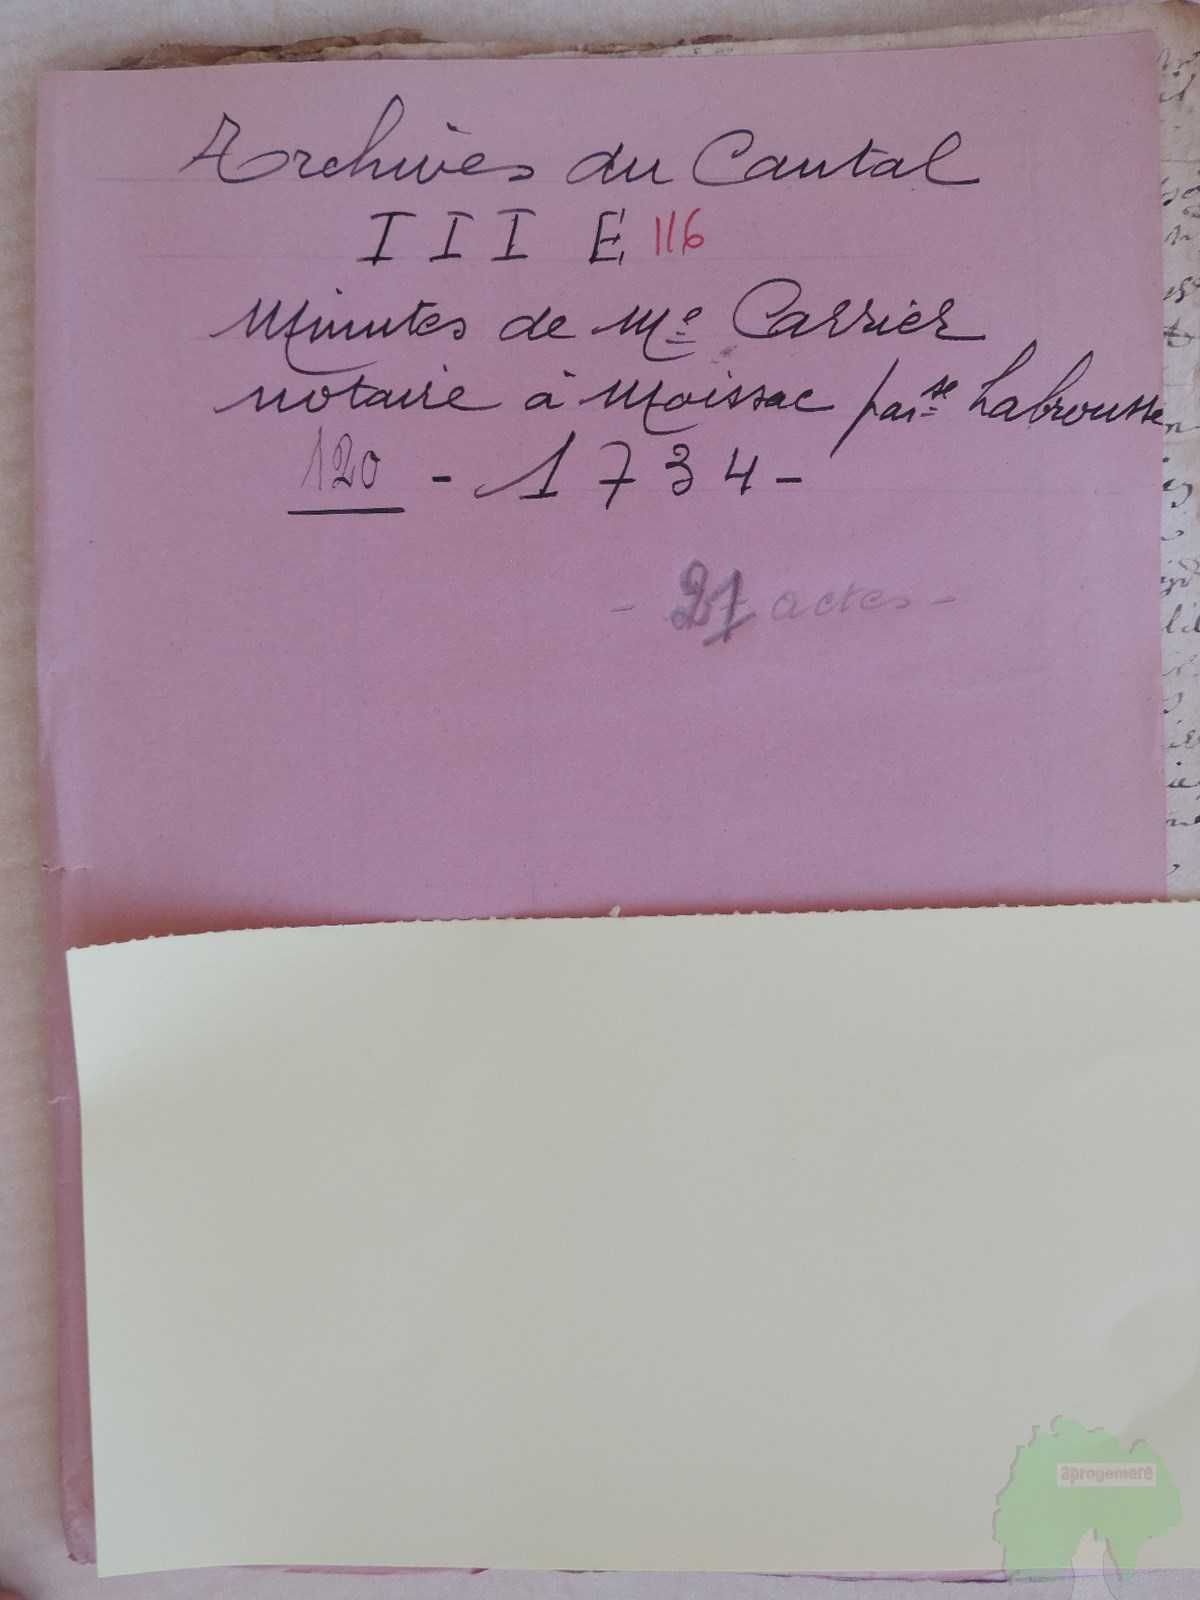 Archives du Cantal
III E 116
Minutes de Me Carrier
notaire à Moissac parsse Labrousse
120 - 1734 -
- 27 actes -
aprogemere